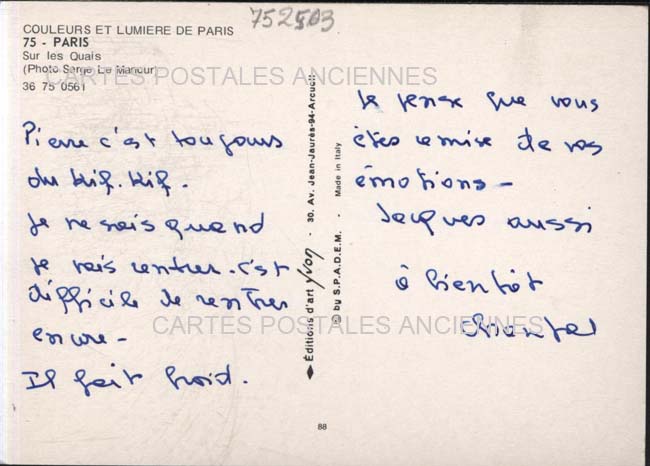 752503
COULEURS ET LUMIERE DE PARIS
75 - PARIS
Sur les Quais
(Photo Serge Le Manour)
36 75 0561
CARTES POSTALES ANCIENNES
Pierre c'est toujours
du Kif. Kif.
Je ne sais quand
je vais rentrer. c'est
difficile de rentrer
encore -
Il fait froid.
Éditions d'art yvon - 30, Av. Jean-Jaurès-94-Arcueil
© by S.P.A.D.E.M. - Made in Italy
Je pense que vous
êtes remise de vos
émotions -
Jacques aussi
à bientôt
CARTES POSTALES ANCIENNES
88